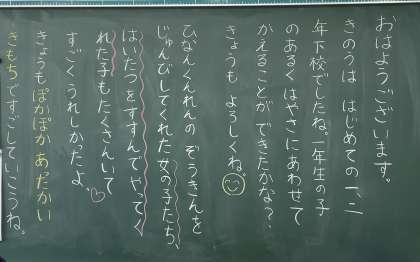 おはようございます。
きのうは はじめての一、二
年下校でしたね。一年生の子
のあるくはやさにあわせて
かえることが できたかな？
きょうも よろしくね。
ひなんくんれんの ぞうきんを
じゅんびしてくれた女の子たち、
はいたつをすすんで やってく
れた子もたくさんいて
すごく うれしかったよ。
きょうもぽかぽか あったかい
きもちですごしていこうね。